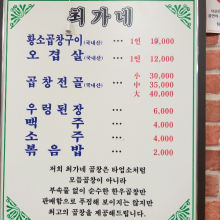 최가네
황소곱창구이(국내산) ... 1인 19,000
오겹살(국내산) ... 1인 12,000
곱창전골(국내산) ... 소 30,000
중 35,000
대 40,000
우렁된장 ... 6,000
맥주 ... 4,000
소주 ... 4,000
볶음밥 ... 2,000
저희 최가네 곱창은 타업소처럼
모듬곱창이 아니라
부속물 없이 순수한 한우곱창만
판매함으로 푸짐해 보이지는 않지만
최고의 곱창을 제공해드립니다.